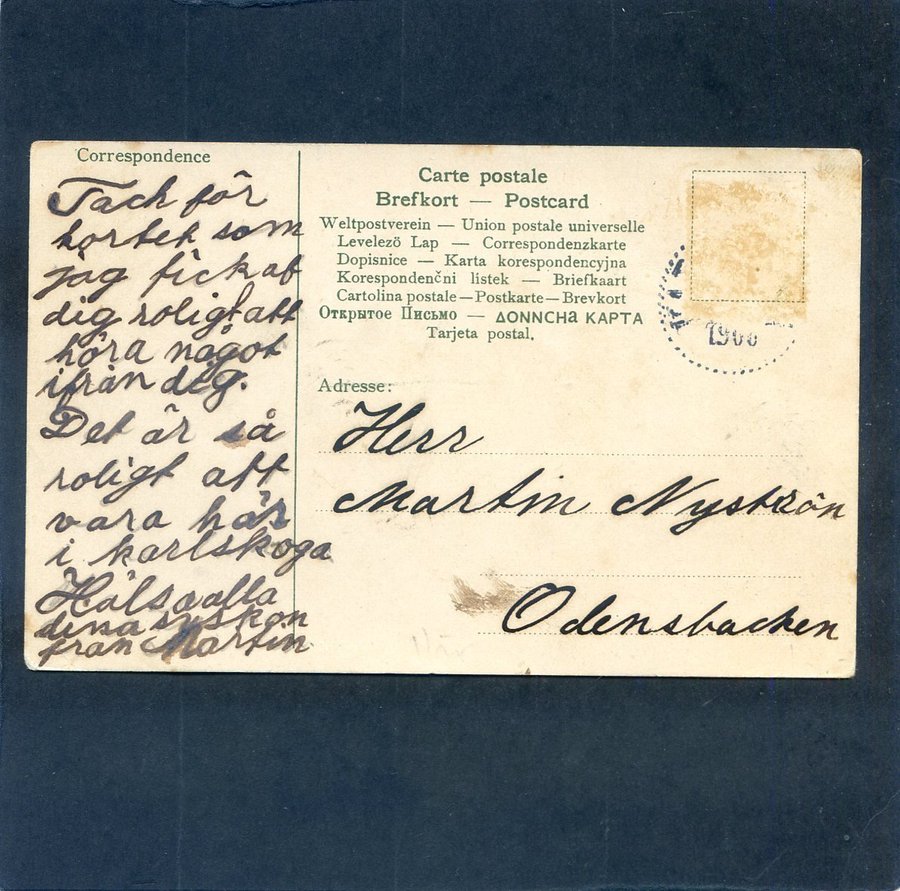 Correspondence
Tack för
kortet som
jag fick af
dig roligt att
höra något
ifrån dig.
Det är så
roligt att
vara här
i karlskoga
Hälsa alla
dina syskon
från Martin
Carte postale
Brefkort — Postcard
Weltpostverein — Union postale universelle
Levelezö Lap — Correspondenzkarte
Dopisnice — Karta korespondencyjna
Korespondenčni listek — Briefkaart
Cartolina postale — Postkarte — Brevkort
Открытое Письмо — ΔΟΝΝCHa KAPTA
Tarjeta postal.
1906
Adresse:
Herr
Martin Nyströn
Odensbacken